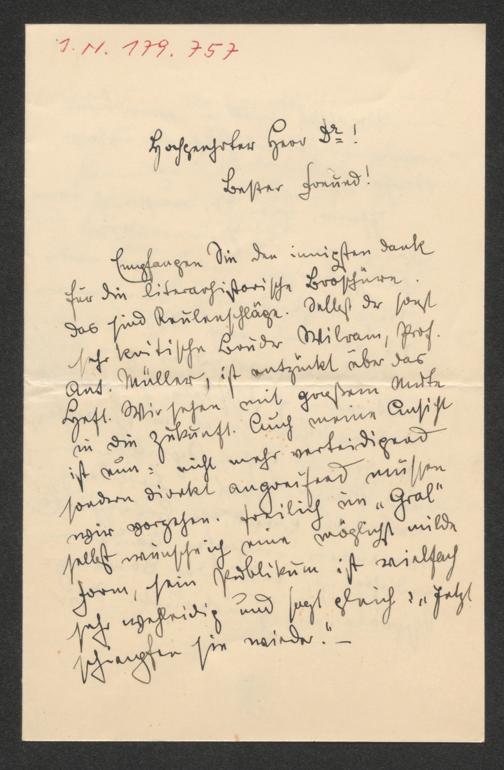 I. N. 179.757
Hochgeehrter Herr Dr!
Bester Freund!
Empfangen Sie den innigsten Dank
für die literarhistorische Broschüre.
Das sind Keulenschläge. Selbst der sonst
sehr kritische Bruder Wilram, Prof.
Ant. Müller, ist entzückt über das
Heft. Wir sehen mit großem Mute
in die Zukunft. Auch meine Ansicht
ist nun: nicht mehr verteidigend
sondern direkt angreifend müssen
wir vorgehen. Freilich im „Gral"
selbst wünsche ich eine möglichst milde
Form, sein Publikum ist vielfach
sehr wehleidig und sagt gleich: „Jetzt
schimpfen sie wieder." —